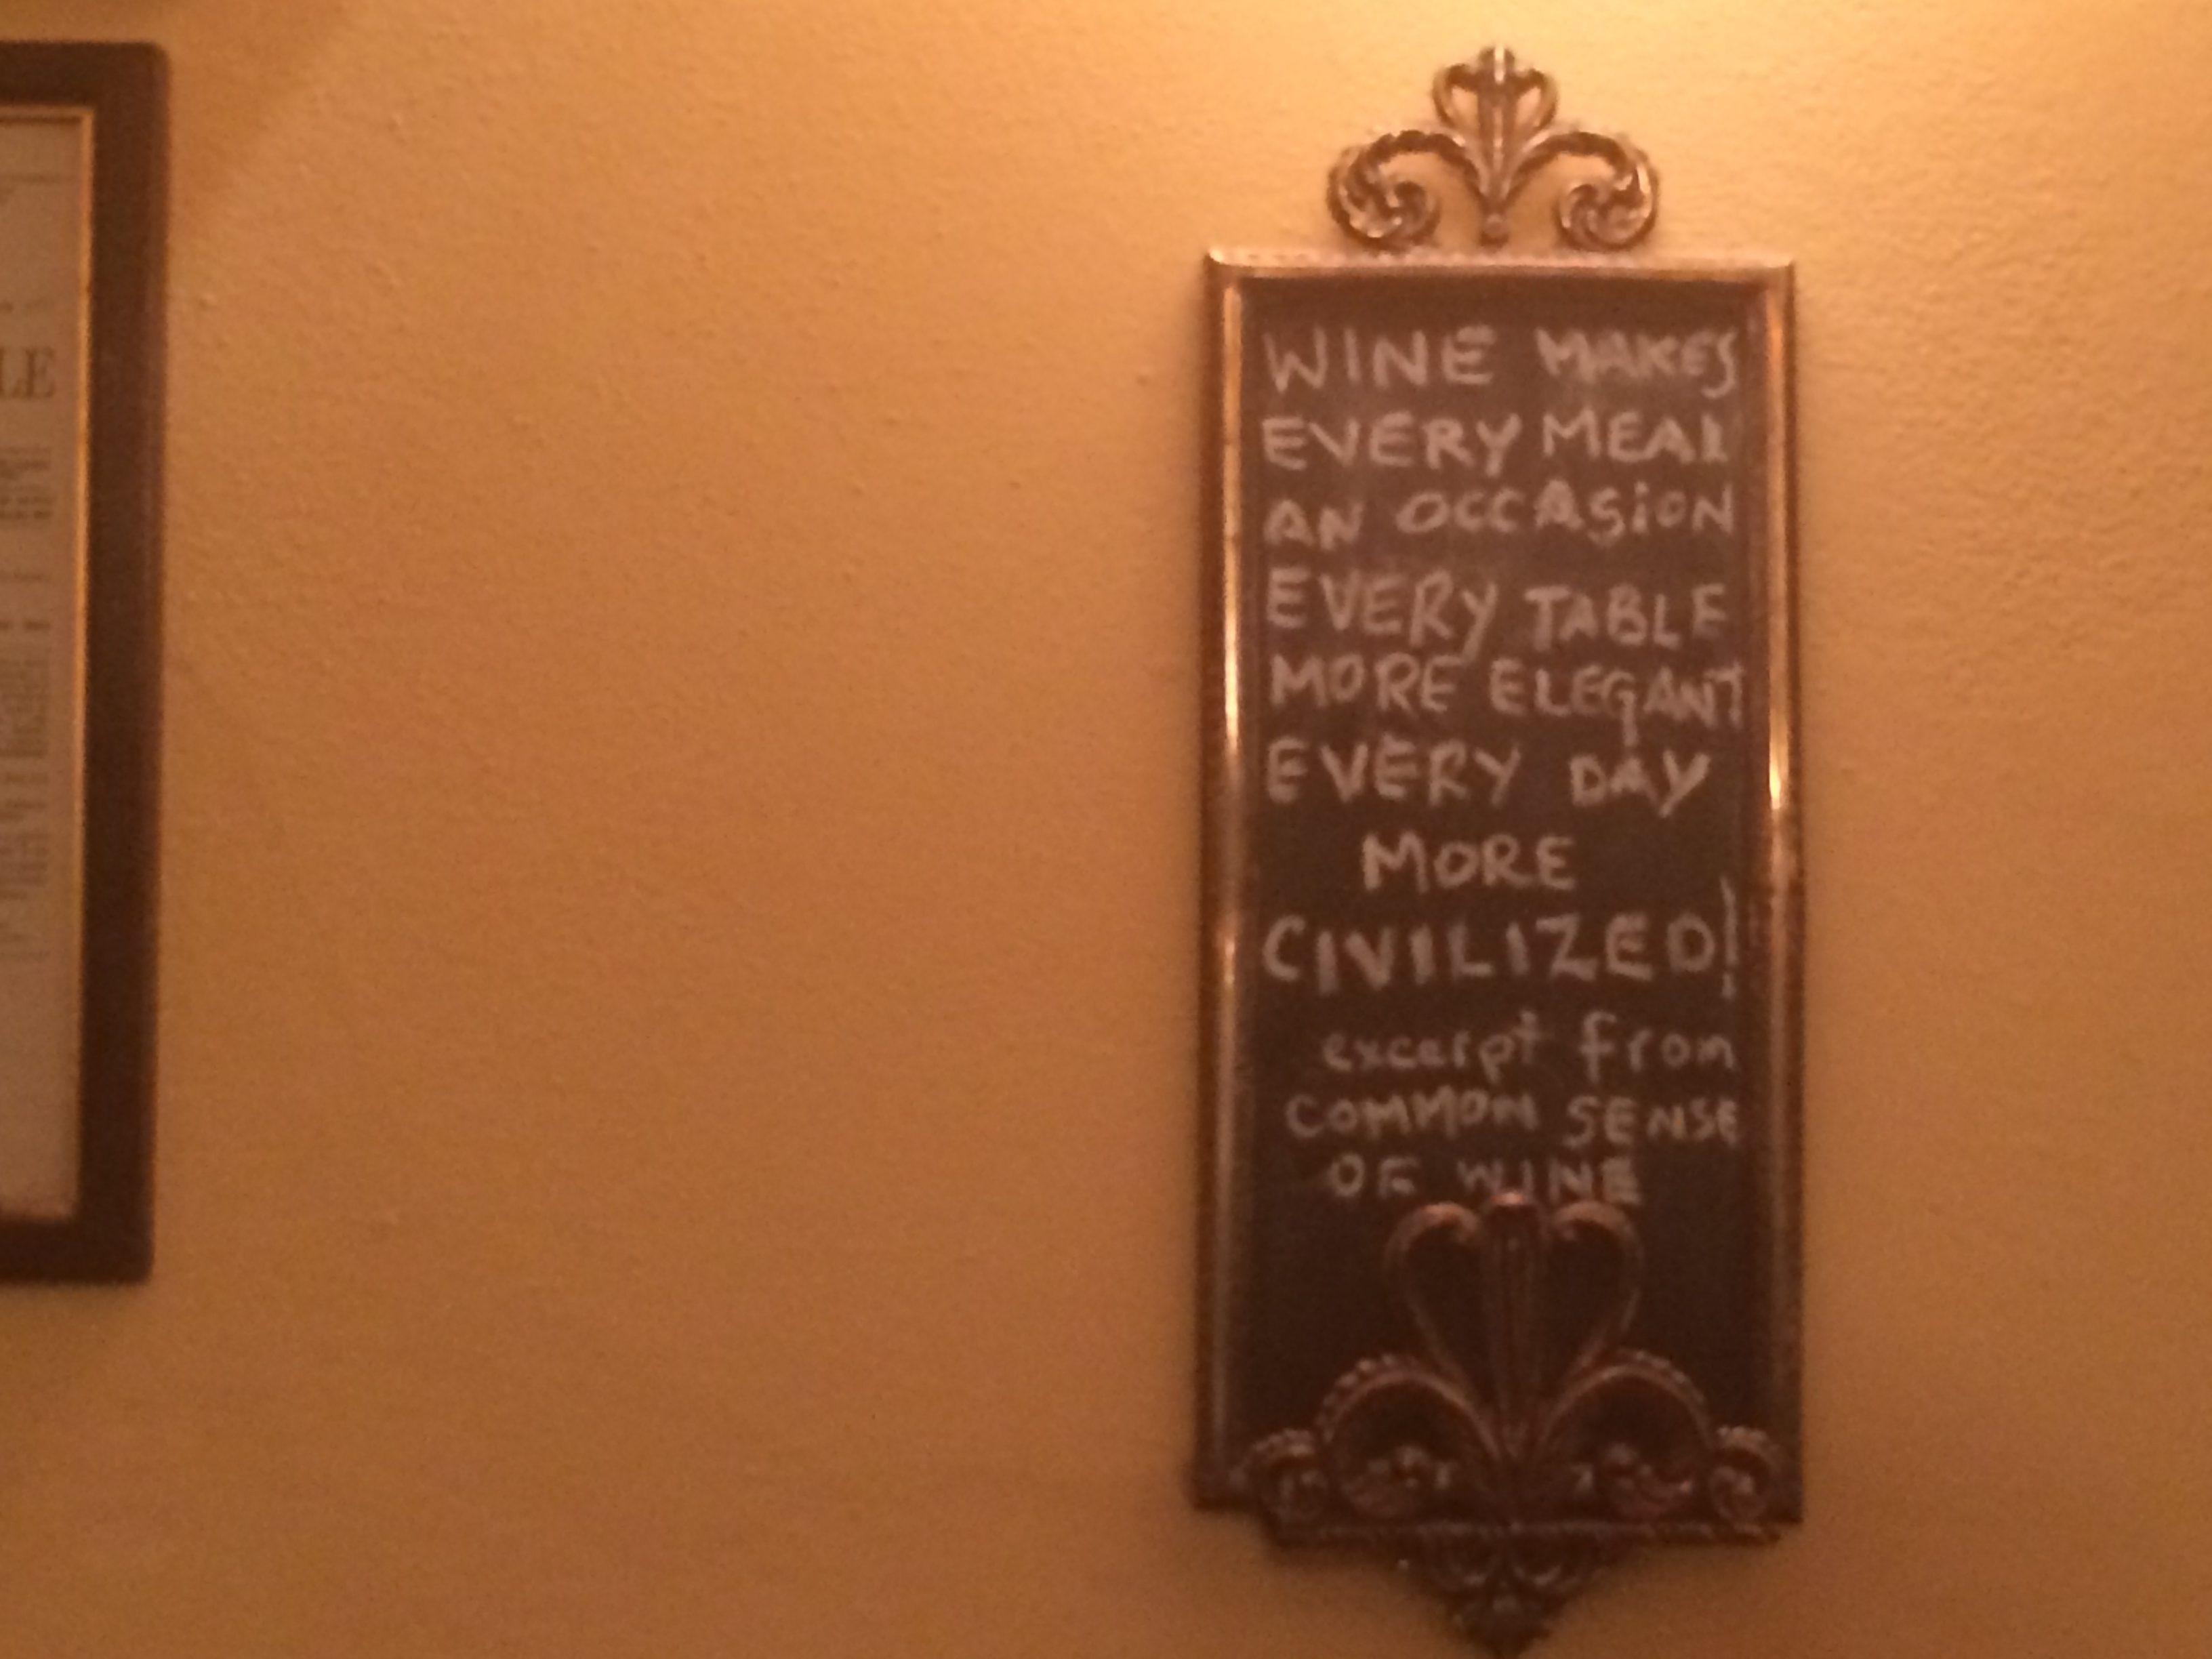 LE
WINE MAKES
EVERY MEAL
AN OCCASiON
EVERY TABLE
MORE ELEGANT
EVERY DAY
MORE
CIVILIZED!
excerpt from
COMMON SENSE
OF WINE